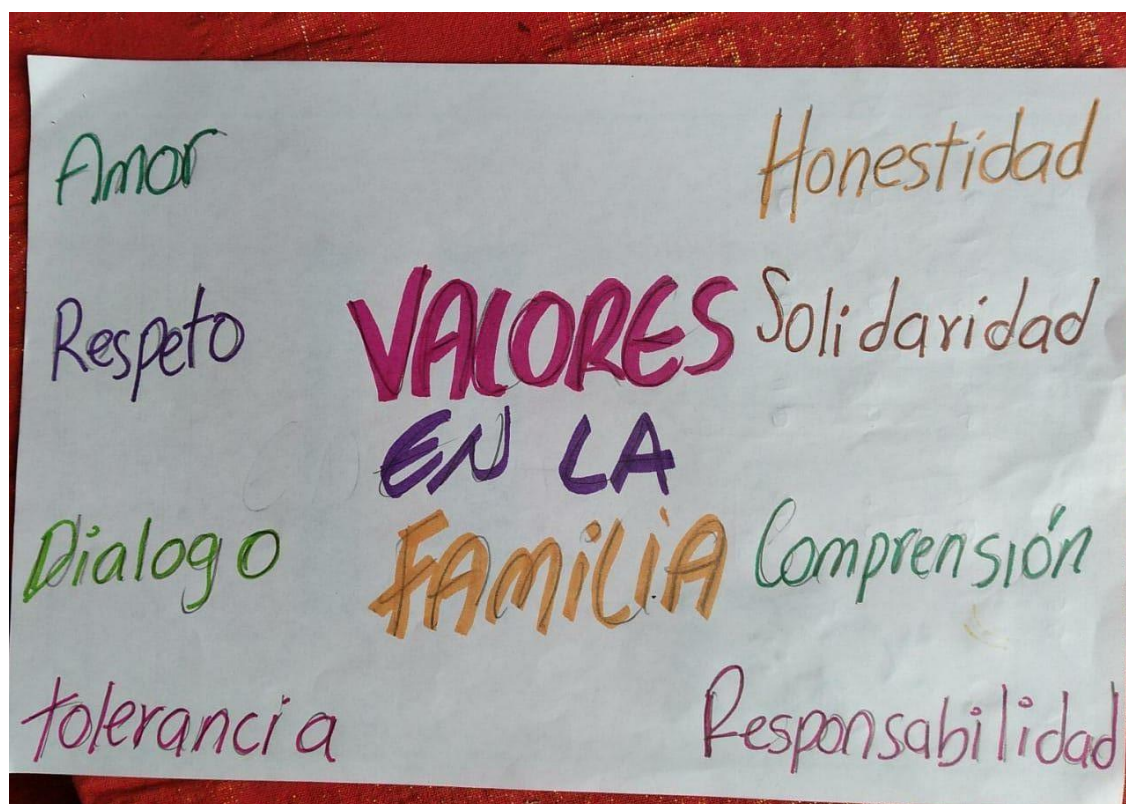 Amor
Respeto
Dialogo
tolerancia
VALORES
EN LA
FAMiLiA
Honestidad
Solidaridad
Comprensión
Responsabilidad